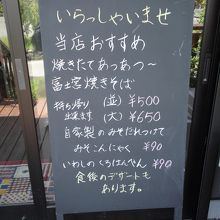 いらっしゃいませ
当店おすすめ
焼きたてあつあつ〜
富士宮焼きそば
持ち帰り出来ます (並) ¥500
(大) ¥650
自家製のみそだれつけて
みそこんにゃく ¥90
いわしのくろはんぺん ¥90
食後のデザートも
あります。